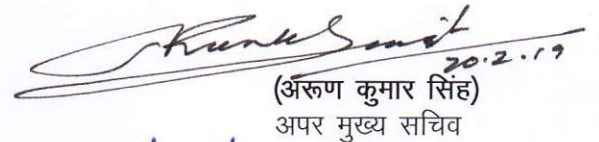 20.2.19
(अरूण कुमार सिंह)
अपर मुख्य सचिव